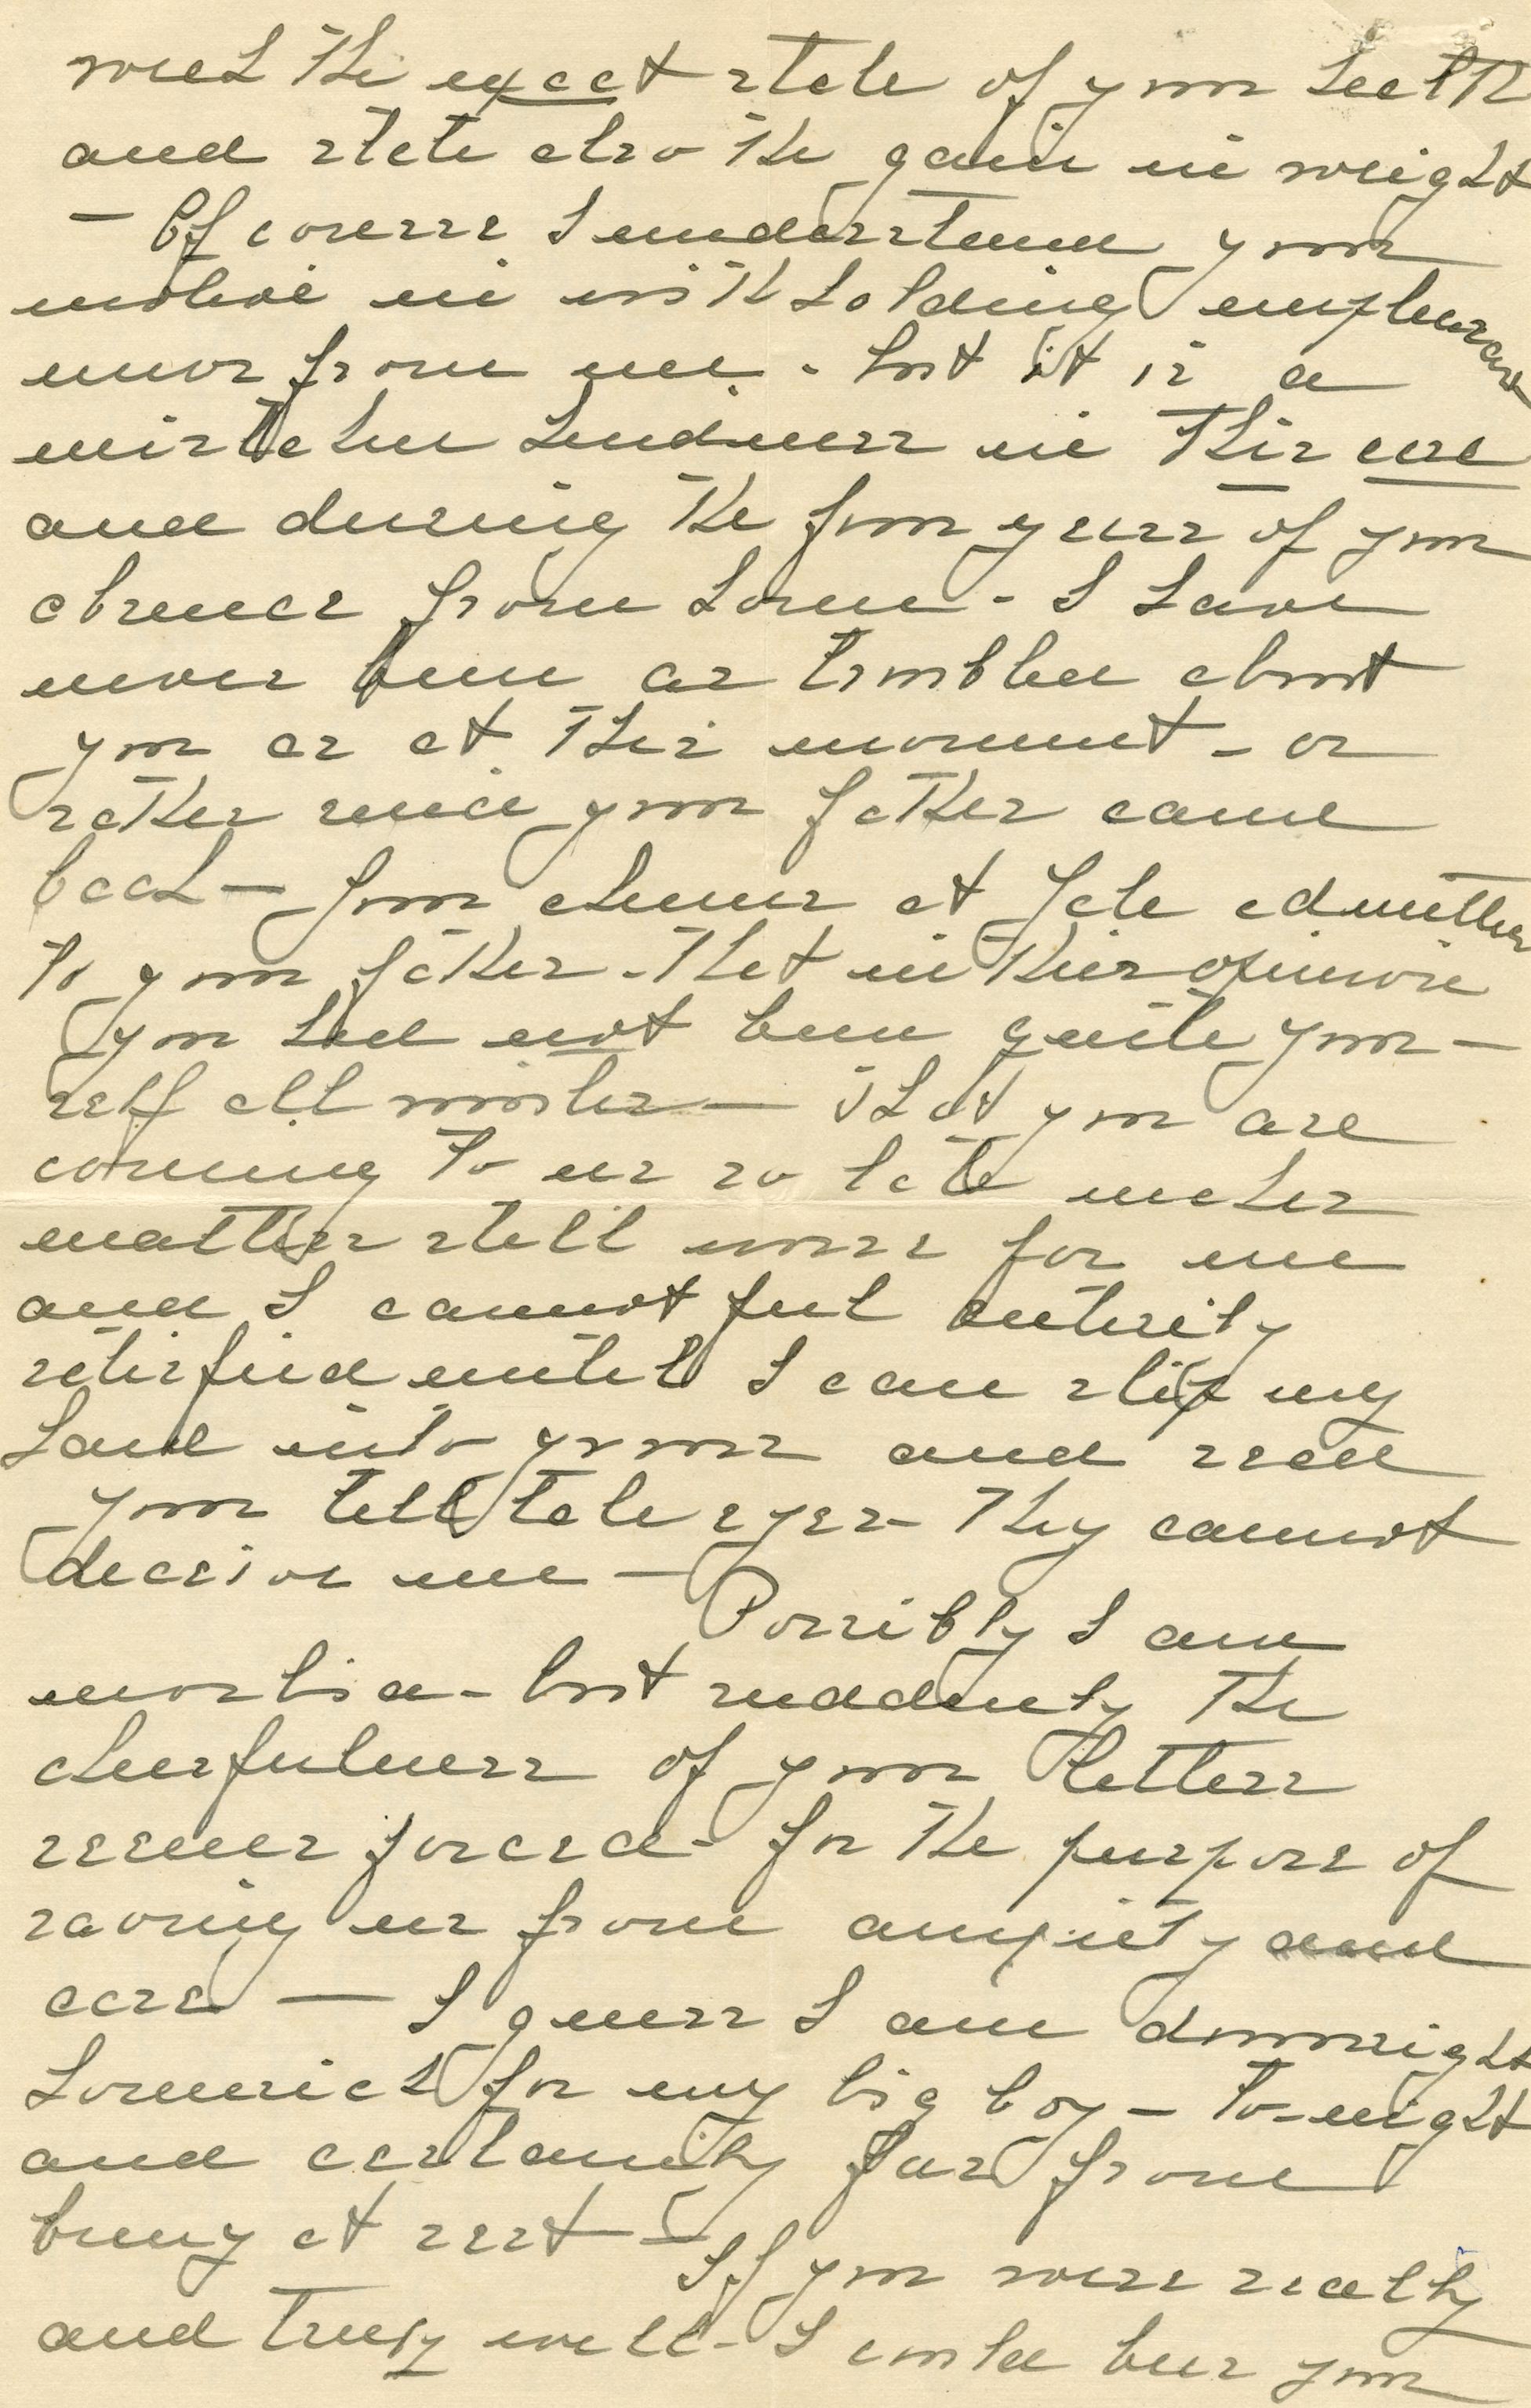 week the exact state of your health
and state also the gain in weight
- Of course I understand your
motive in withholding unpleasant
news from me - but it is a
mistaken kindness in this case
and during the four years of your
absence from home - I have
never been as troubled about
you as at this moment - or
rather since your father came
back - Your chums at Yale admitted
to your father - that in their opinion
you had not been quite your-
self all winter - That you are
coming to us so late makes
matters still worse for me
and I cannot feel entirely
satisfied until I can slip my
hand into yours and read
your tell tale eyes - They cannot
deceive me -
Possibly I am
morbid - but suddenly the
cheerfulness of your letters
seems forced - for the purpose of
saving us from anxiety and
care - I guess I am downright
homesick for my big boy - to-night
and certainly far from
being at rest - If you were really
and truly well - I could bear your